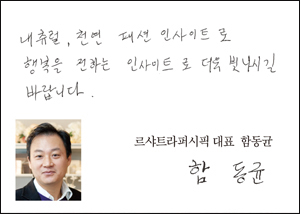 내츄럴, 천연 패션 인사이트로
행복을 전하는 인사이트로 더욱 빛나시길
바랍니다.
르샤트라퍼시픽 대표 함동균
함 동균